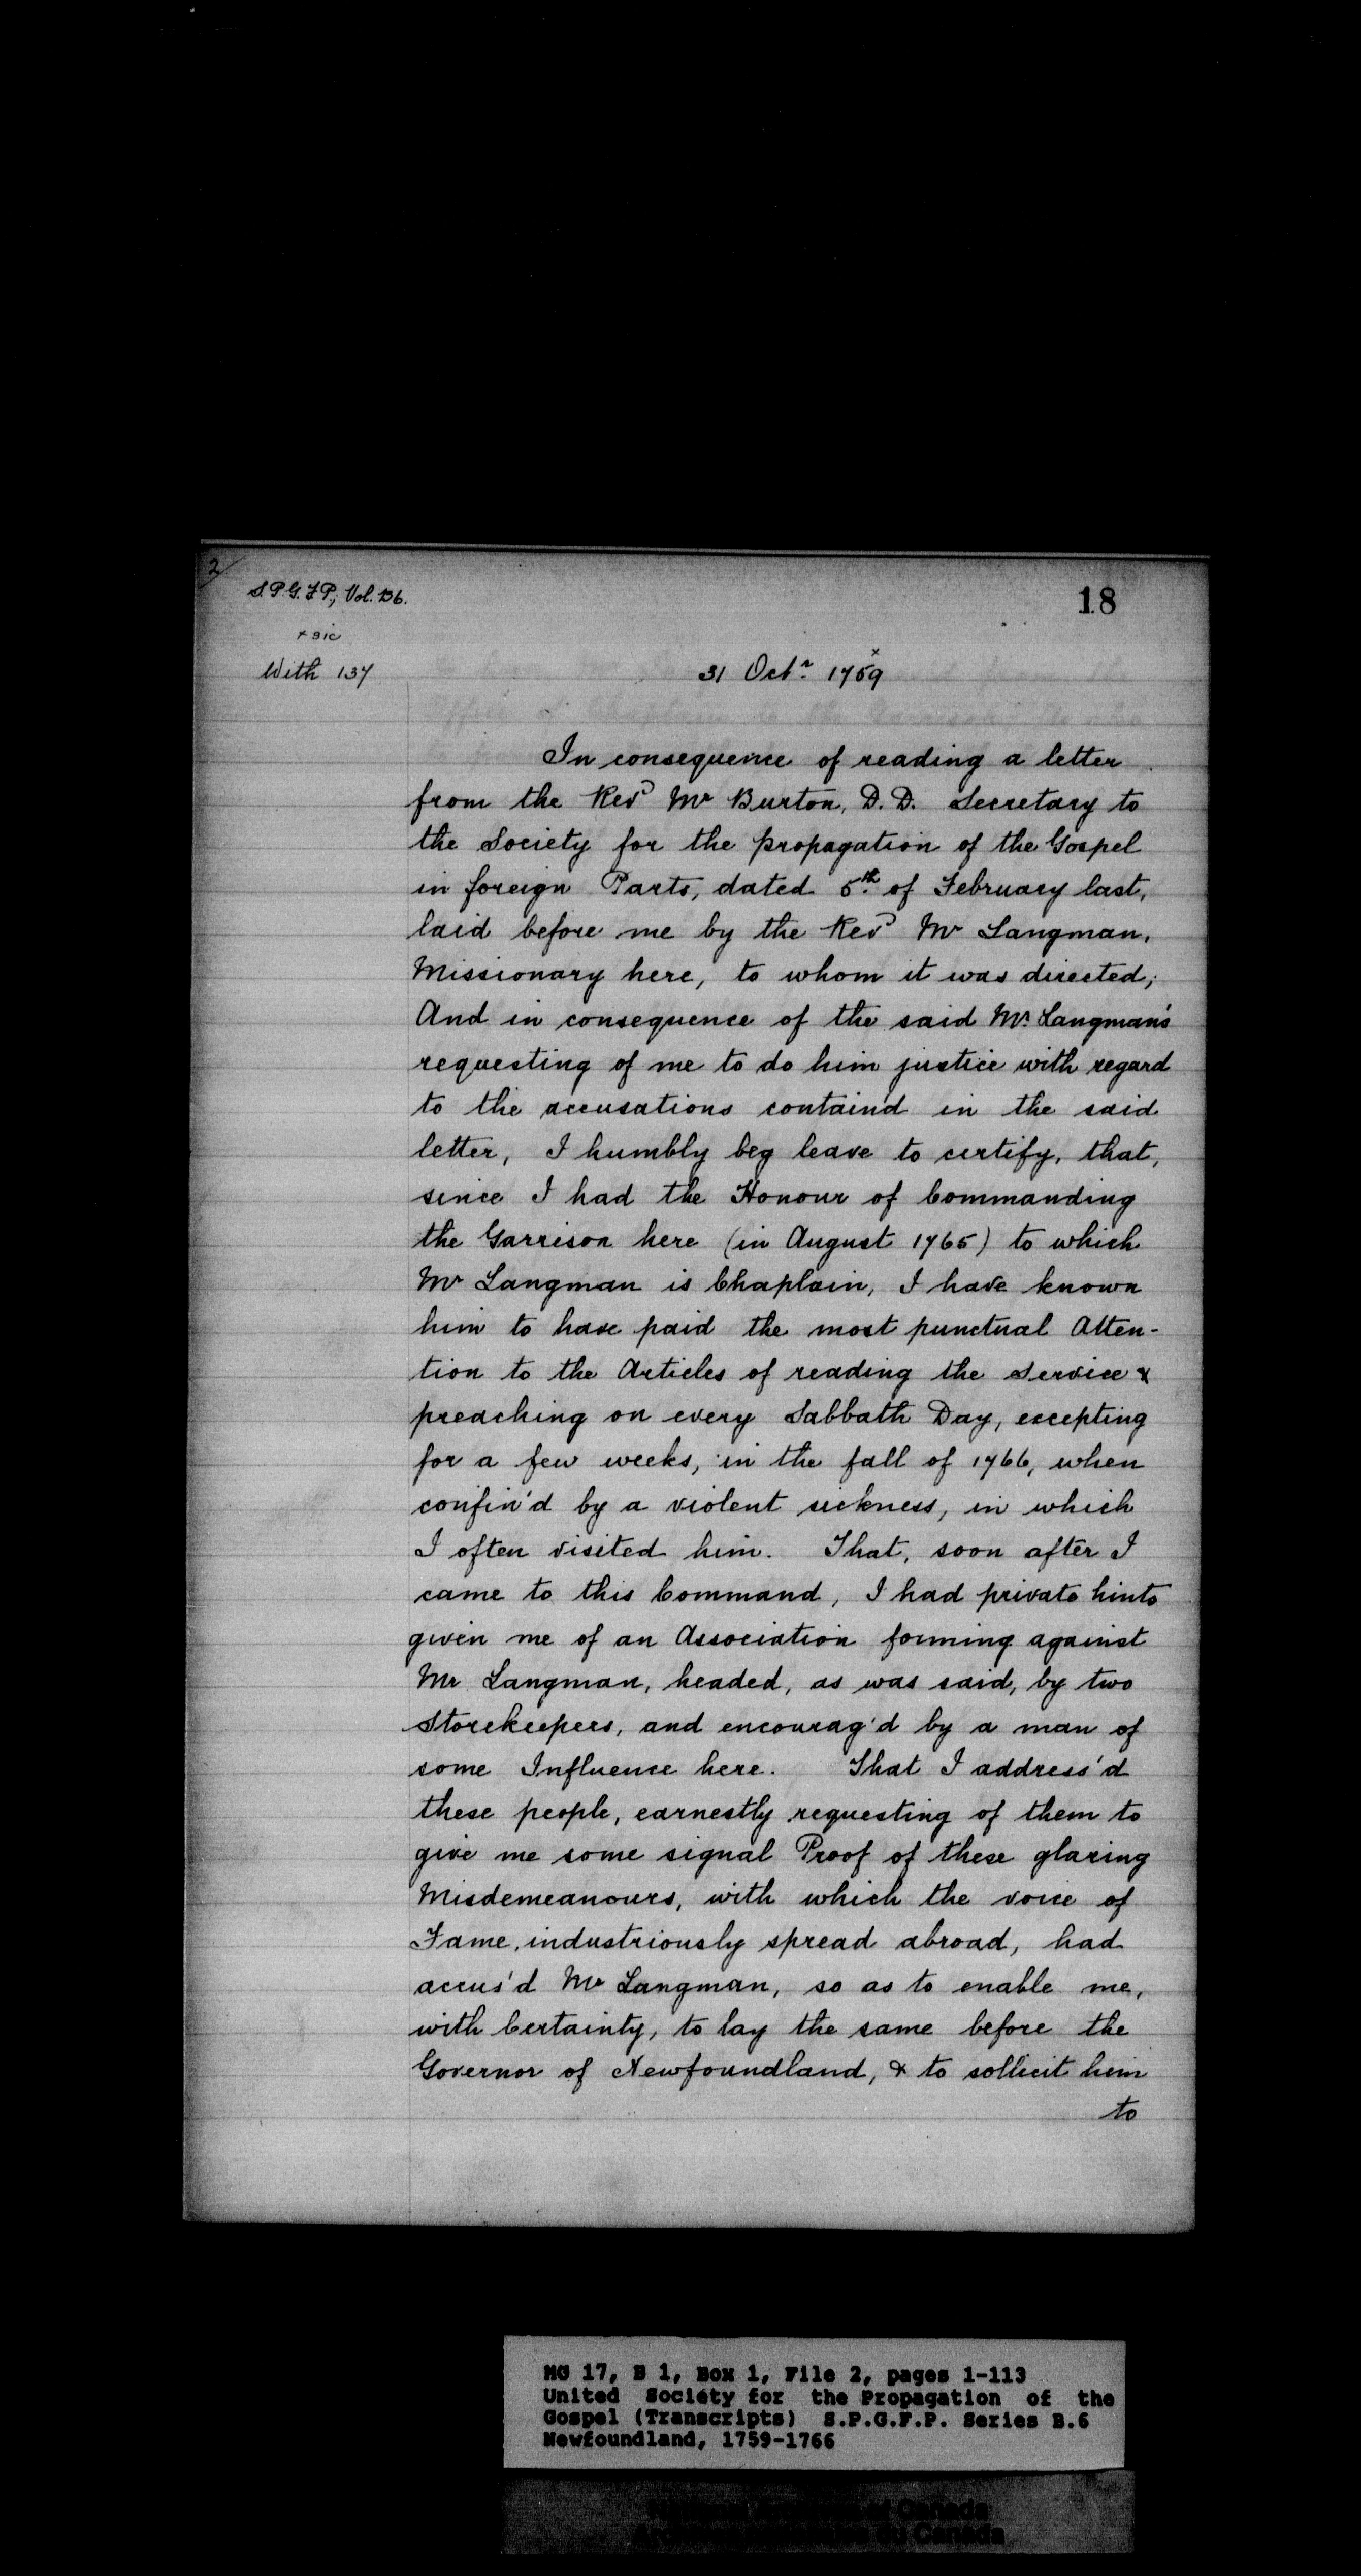 2
S.P.G.F.P., Vol. B6.
18
x sic
With 137
31 Octr. 1759 x
In consequence of reading a letter
from the Revd Mr Burton, D.D. Secretary to
the Society for the propagation of the Gospel
in foreign Parts, dated 5th. of February last,
laid before me by the Revd Mr Langman,
Missionary here, to whom it was directed;
And in consequence of the said Mr. Langman's
requesting of me to do him justice with regard
to the accusations containd in the said
letter, I humbly beg leave to certify, that,
since I had the Honour of Commanding
the Garrison here (in August 1765) to which
Mr Langman is Chaplain, I have known
him to have paid the most punctual Atten-
tion to the Articles of reading the Service &
preaching on every Sabbath Day, excepting
for a few weeks, in the fall of 1766, when
confin'd by a violent sickness, in which
I often visited him. That, soon after I
came to this Command, I had private hints
given me of an Association forming against
Mr Langman, headed, as was said, by two
Storekeepers, and encourag'd by a man of
some Influence here. That I address'd
these people, earnestly requesting of them to
give me some signal Proof of these glaring
Misdemeanours, with which the voice of
Fame, industriously spread abroad, had
accus'd Mr Langman, so as to enable me,
with Certainty, to lay the same before the
Governor of Newfoundland, & to sollicit him
to
MG 17, B 1, Box 1, File 2, pages 1-113
United Society for the Propagation of the
Gospel (Transcripts) S.P.G.F.P. Series B.6
Newfoundland, 1759-1766